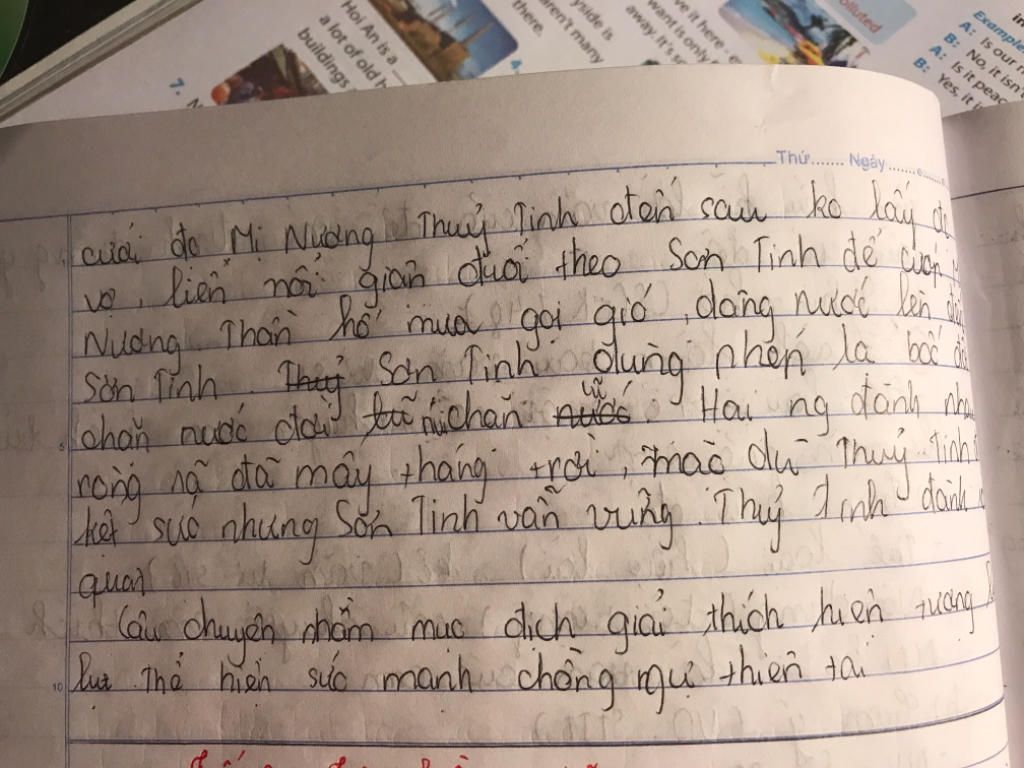 7.
Hoi An is a
a lot of old h
buildings
4.
yside is
aren't many
there.
ve it here - e
want is only
away. It's
polluted
Example
A: Is our
B: No, it isn'
A: Is it peac
B: Yes, it i
Thứ....... Ngày
cưới đc Mị Nương Thuỷ Tinh đến sau ko lấy đc
vợ, liền nổi giận đuổi theo Sơn Tinh để cướp
Nương Thần hô mưa gọi gió, dâng nước lên
Sơn Tinh. Thuỷ Sơn Tinh dùng phép lạ bốc
chặn nước dời lũ núi chặn nước lũ. Hai ng đánh
ròng rã đã mấy tháng trời, mặc dù Thuỷ Tinh
kệt sức nhưng Sơn Tinh vẫn vững. Thuỷ Tinh đành
quan
Câu chuyện nhằm mục đích giải thích hiện tượng
lụt thể hiện sức mạnh chống ngự thiên tai
10